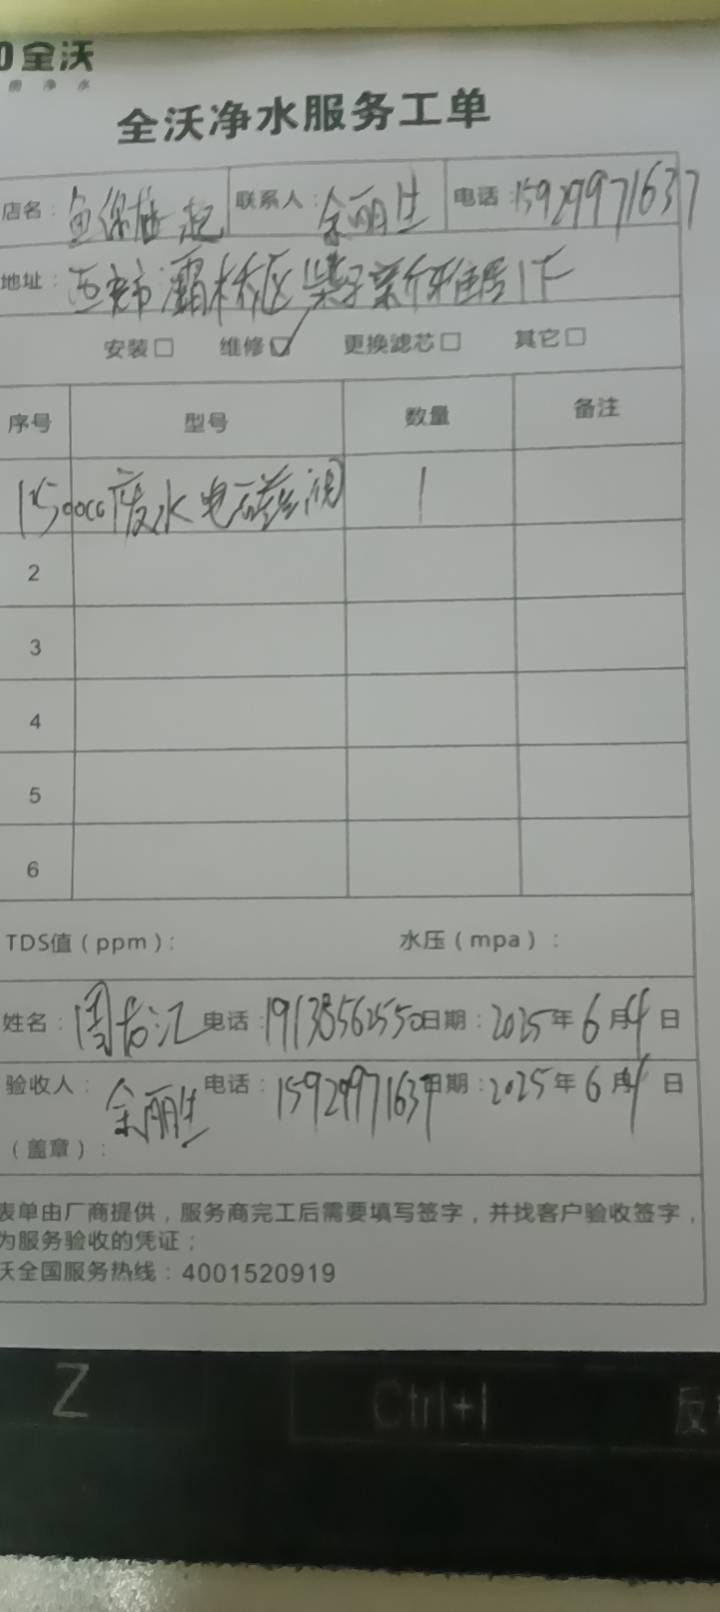 全沃
净水
全沃净水服务工单
店名： 联系人：余丽生 电话：15929971637
地址：西安市灞桥区 1F
安装□ 维修☑ 更换滤芯□ 其它□
序号 型号 数量 备注
1 1500cc废水电磁阀 1
2
3
4
5
6
TDS值（ppm）： 水压（mpa）：
姓名：周 汇 电话：19138562550 日期：2025年6月4日
验收人：余丽生 电话：15929971637 日期：2025年6月4日
（盖章）：
表单由厂商提供，服务商完工后需要填写签字，并找客户验收签字，
为服务验收的凭证；
沃全国服务热线：4001520919
Z Ctrl+I 反